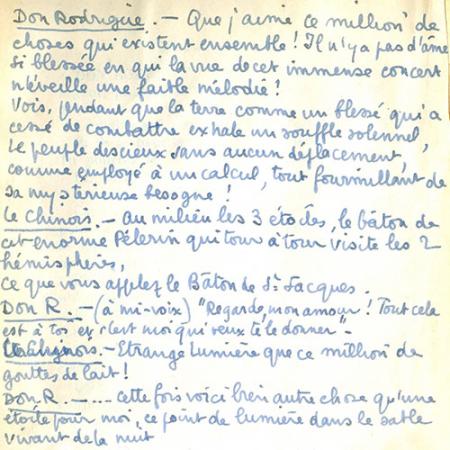 Don Rodrigue. – Que j'aime ce million de
choses qui existent ensemble ! Il n'y a pas d'âme
si blessée en qui la vue de cet immense concert
n'éveille une faible mélodie !
Vois, pendant que la terre comme un blessé qui a
cessé de combattre exhale un souffle solennel,
Le peuple des cieux sans aucun déplacement,
comme employé à un calcul, tout fourmillant de
sa mystérieuse besogne !
Le Chinois. – au milieu les 3 étoiles, le bâton de
cet enorme Pèlerin qui tour à tour visite les 2
hémisphères,
ce que vous appelez le Bâton de St Jacques.
Don R. – (à mi-voix) "Regarde, mon amour ! Tout cela
est à toi et c'est moi qui veux te le donner" -
Le Chinois. – Etrange Lumière que ce million de
gouttes de lait !
Don R. – .... cette fois voici bien autre chose qu'une
étoile pour moi, ce point de lumière dans le sable
vivant de la nuit